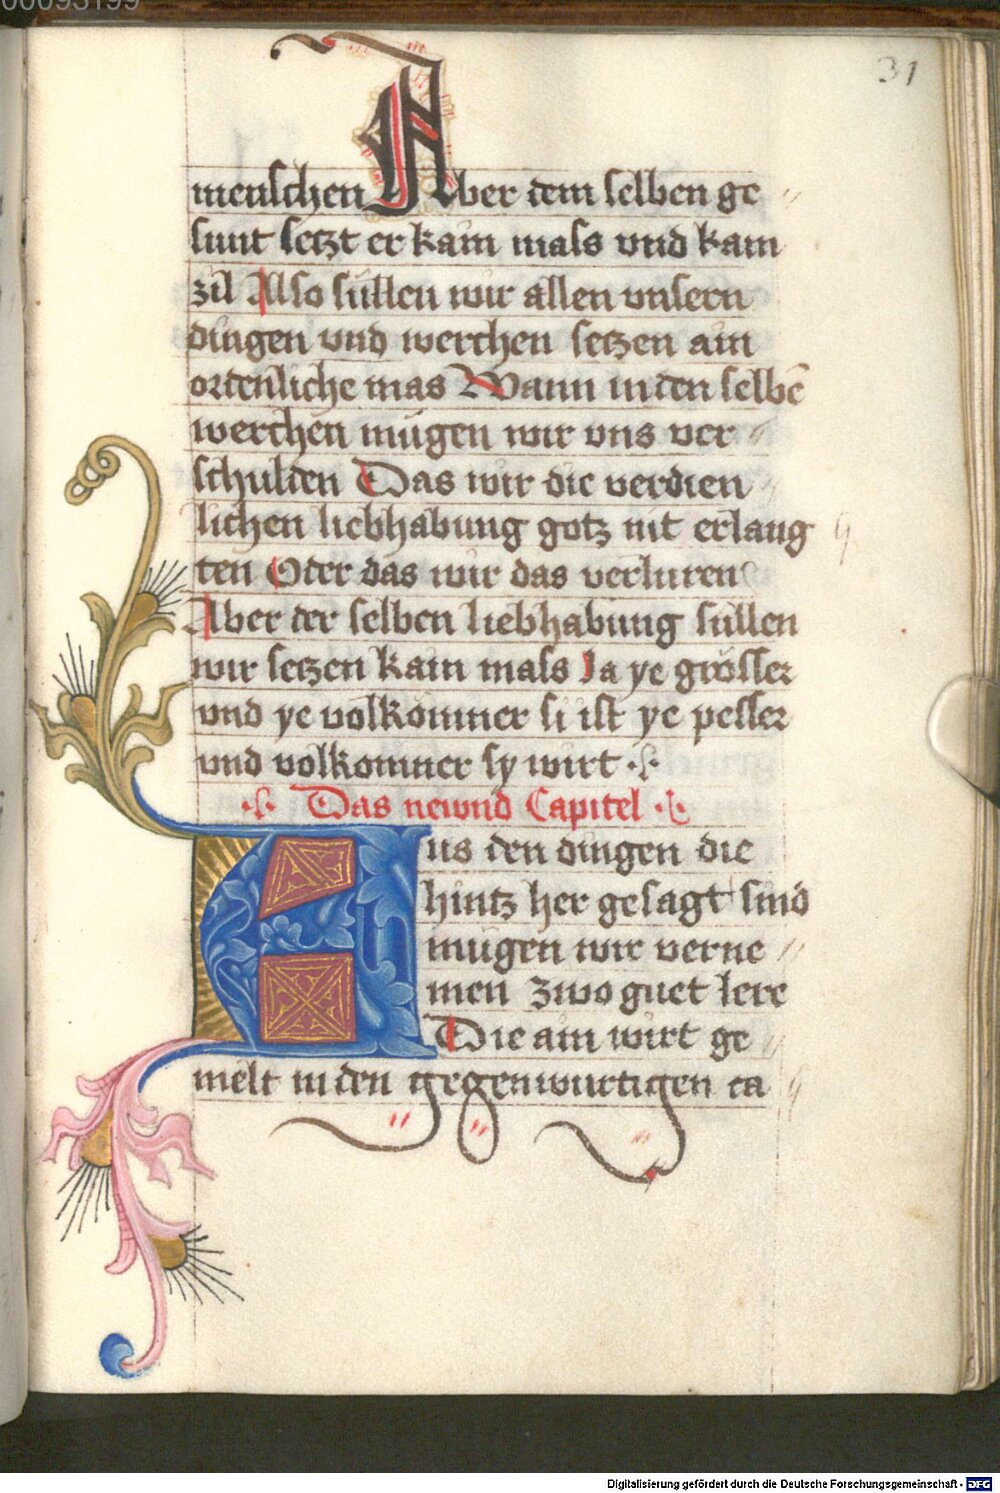 00093199
31
menschen Aber dem selben ge
sunt setzt er kain mass vnd kain
zil Also süllen wir allen vnsern
dingen vnd werchen setzen ain
ordenliche mas Wann in den selbē
werchen mügen wir vns ver
schulden Das wir die verdien
lichen liebhabung gotz nit erlang
ten Oder das wir das verluren
Aber der selben liebhabung süllen
wir setzen kain mass Ja ye grösser
vnd ye volkomner si ist ye pesser
vnd volkomner sy wirt
Das newnd Capitel
Aus den dingen die
hintz her gesagt sind
mügen wir verne
men zwo guet lere
Die ain wirt ge
melt in den gegenwurtigen ca
Digitalisierung gefördert durch die Deutsche Forschungsgemeinschaft - DFG